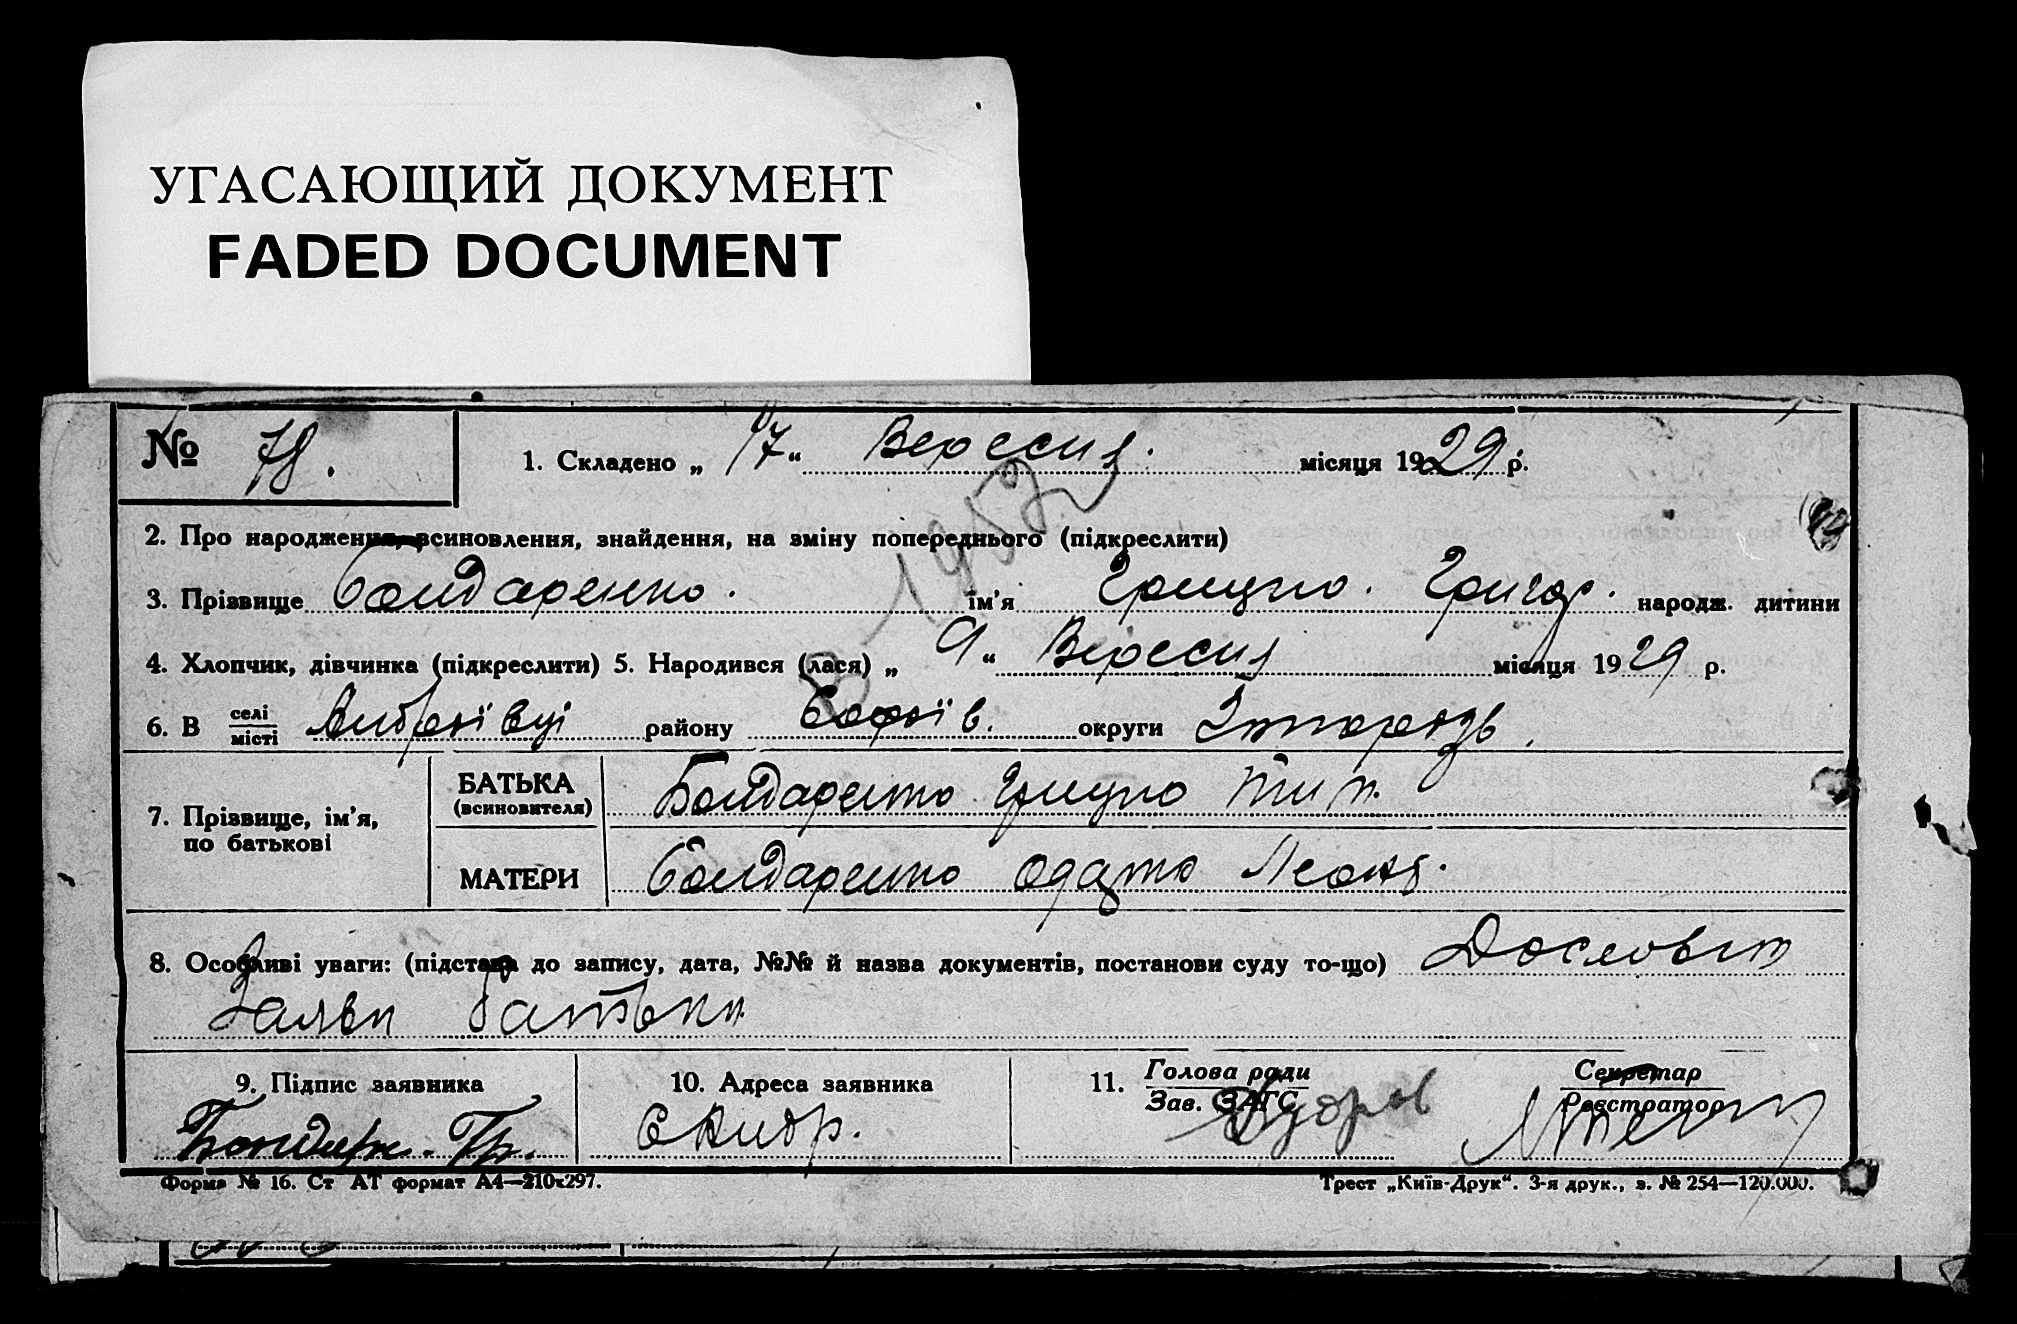 УГАСАЮЩИЙ ДОКУМЕНТ
FADED DOCUMENT
№ 78. 1. Складено „ 17 “ Вересня. місяця 1929 р.
2. Про народження, всиновлення, знайдення, на зміну попереднього (підкреслити)
3. Прізвище Бондаренко. ім'я Грицко. Григор. народж. дитини
4. Хлопчик, дівчинка (підкреслити) 5. Народився (лася) „ 9 “ Вересня місяця 1929 р.
6. В селі
місті району Софїів. округи
7. Прізвище, ім'я,
по батькові
БАТЬКА
(всиновителя)
Бондаренко Грицко
МАТЕРИ Бондаренко
8. Особливі уваги: (підстава до запису, дата, №№ й назва документів, постанови суду то-що)
Заяви батька
9. Підпис заявника 10. Адреса заявника 11. Голова ради Секретар
Зав. ЗАГС Реєстратор
Форма № 16. Ст АТ формат А4—210x297. Трест „Київ-Друк“. 3-я друк., з. № 254—120.000.